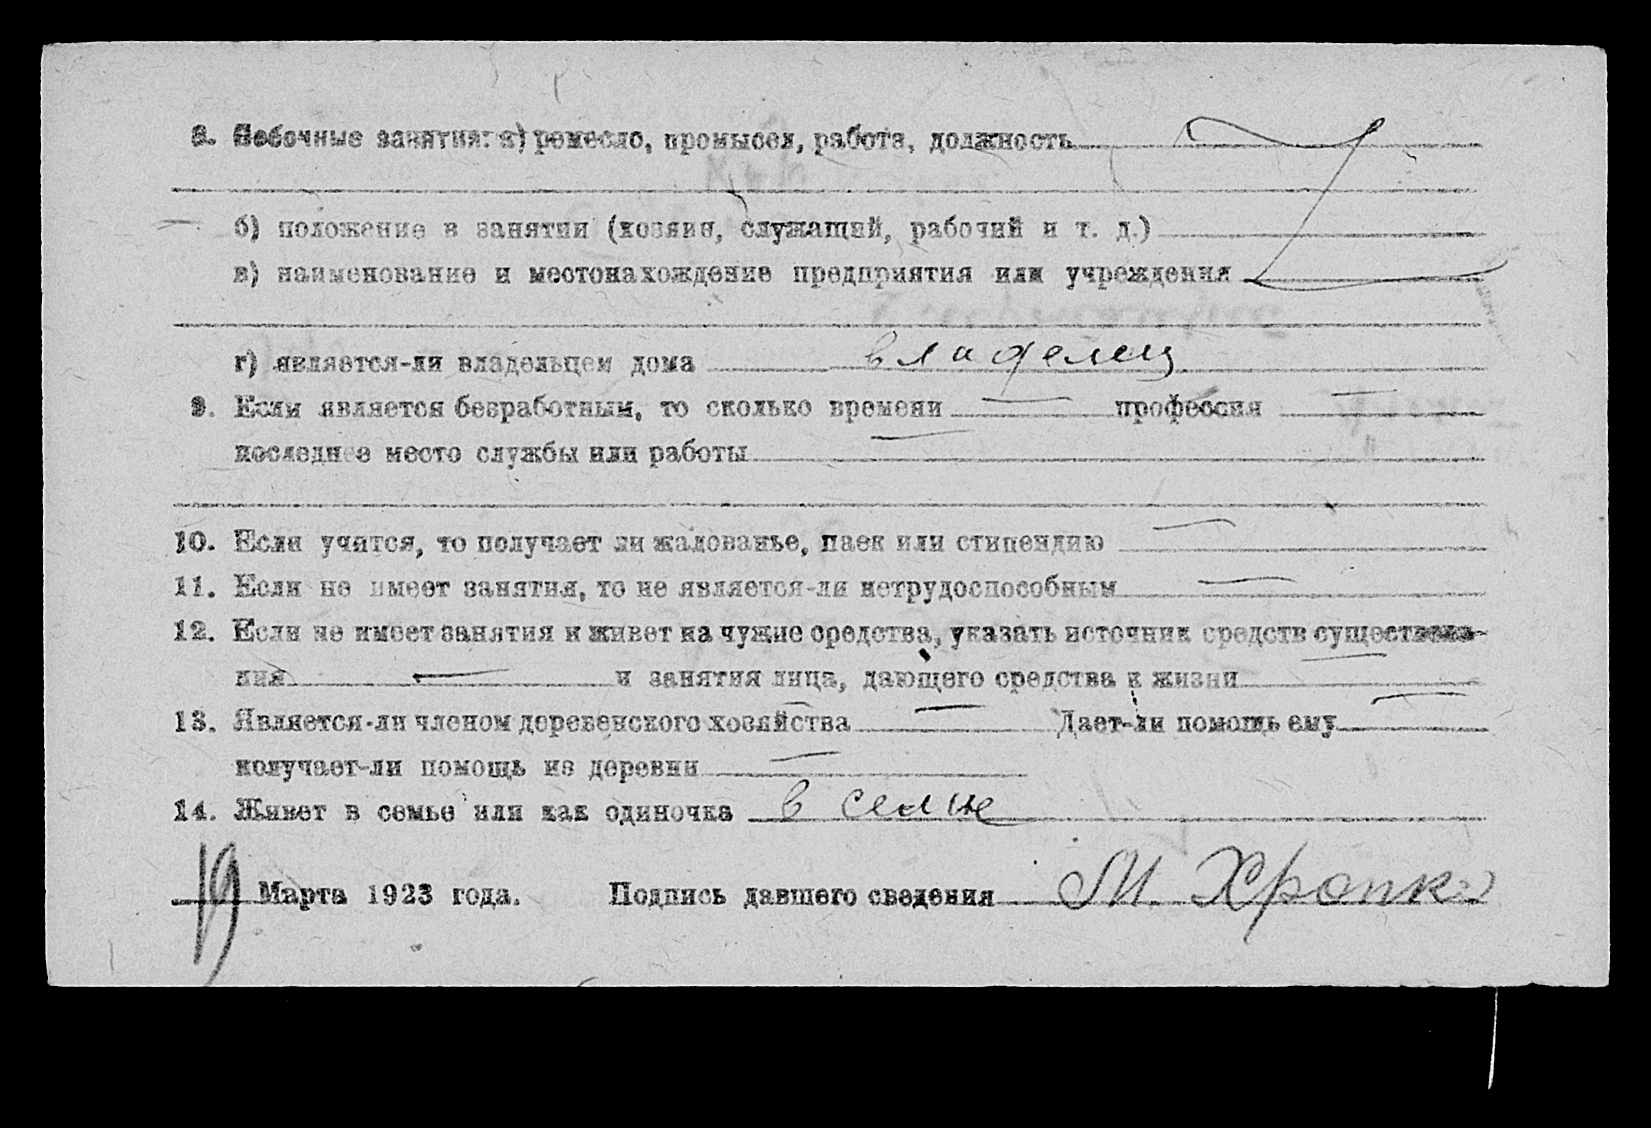 8. Побочные занятия: а) ремесло, промысел, работа, должность
б) положение в занятии (хозяин, служащий, рабочий и т. д.)
в) наименование и местонахождение предприятия или учреждения
г) является-ли владельцем дома владелец
9. Если является безработным, то сколько времени — профессия —
последнее место службы или работы —
10. Если учится, то получает ли жалованье, паек или стипендию —
11. Если не имеет занятия, то не является-ли нетрудоспособным —
12. Если не имеет занятия и живет на чужие средства, указать источник средств существова-
ния — и занятия лица, дающего средства к жизни —
13. Является-ли членом деревенского хозяйства — Дает-ли помощь ему —
получает-ли помощь из деревни —
14. Живет в семье или как одиночка в семье
19 Марта 1923 года. Подпись давшего сведения М.